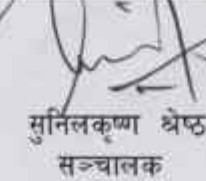 सुनिलकृष्ण श्रेष्ठ
सञ्चालक